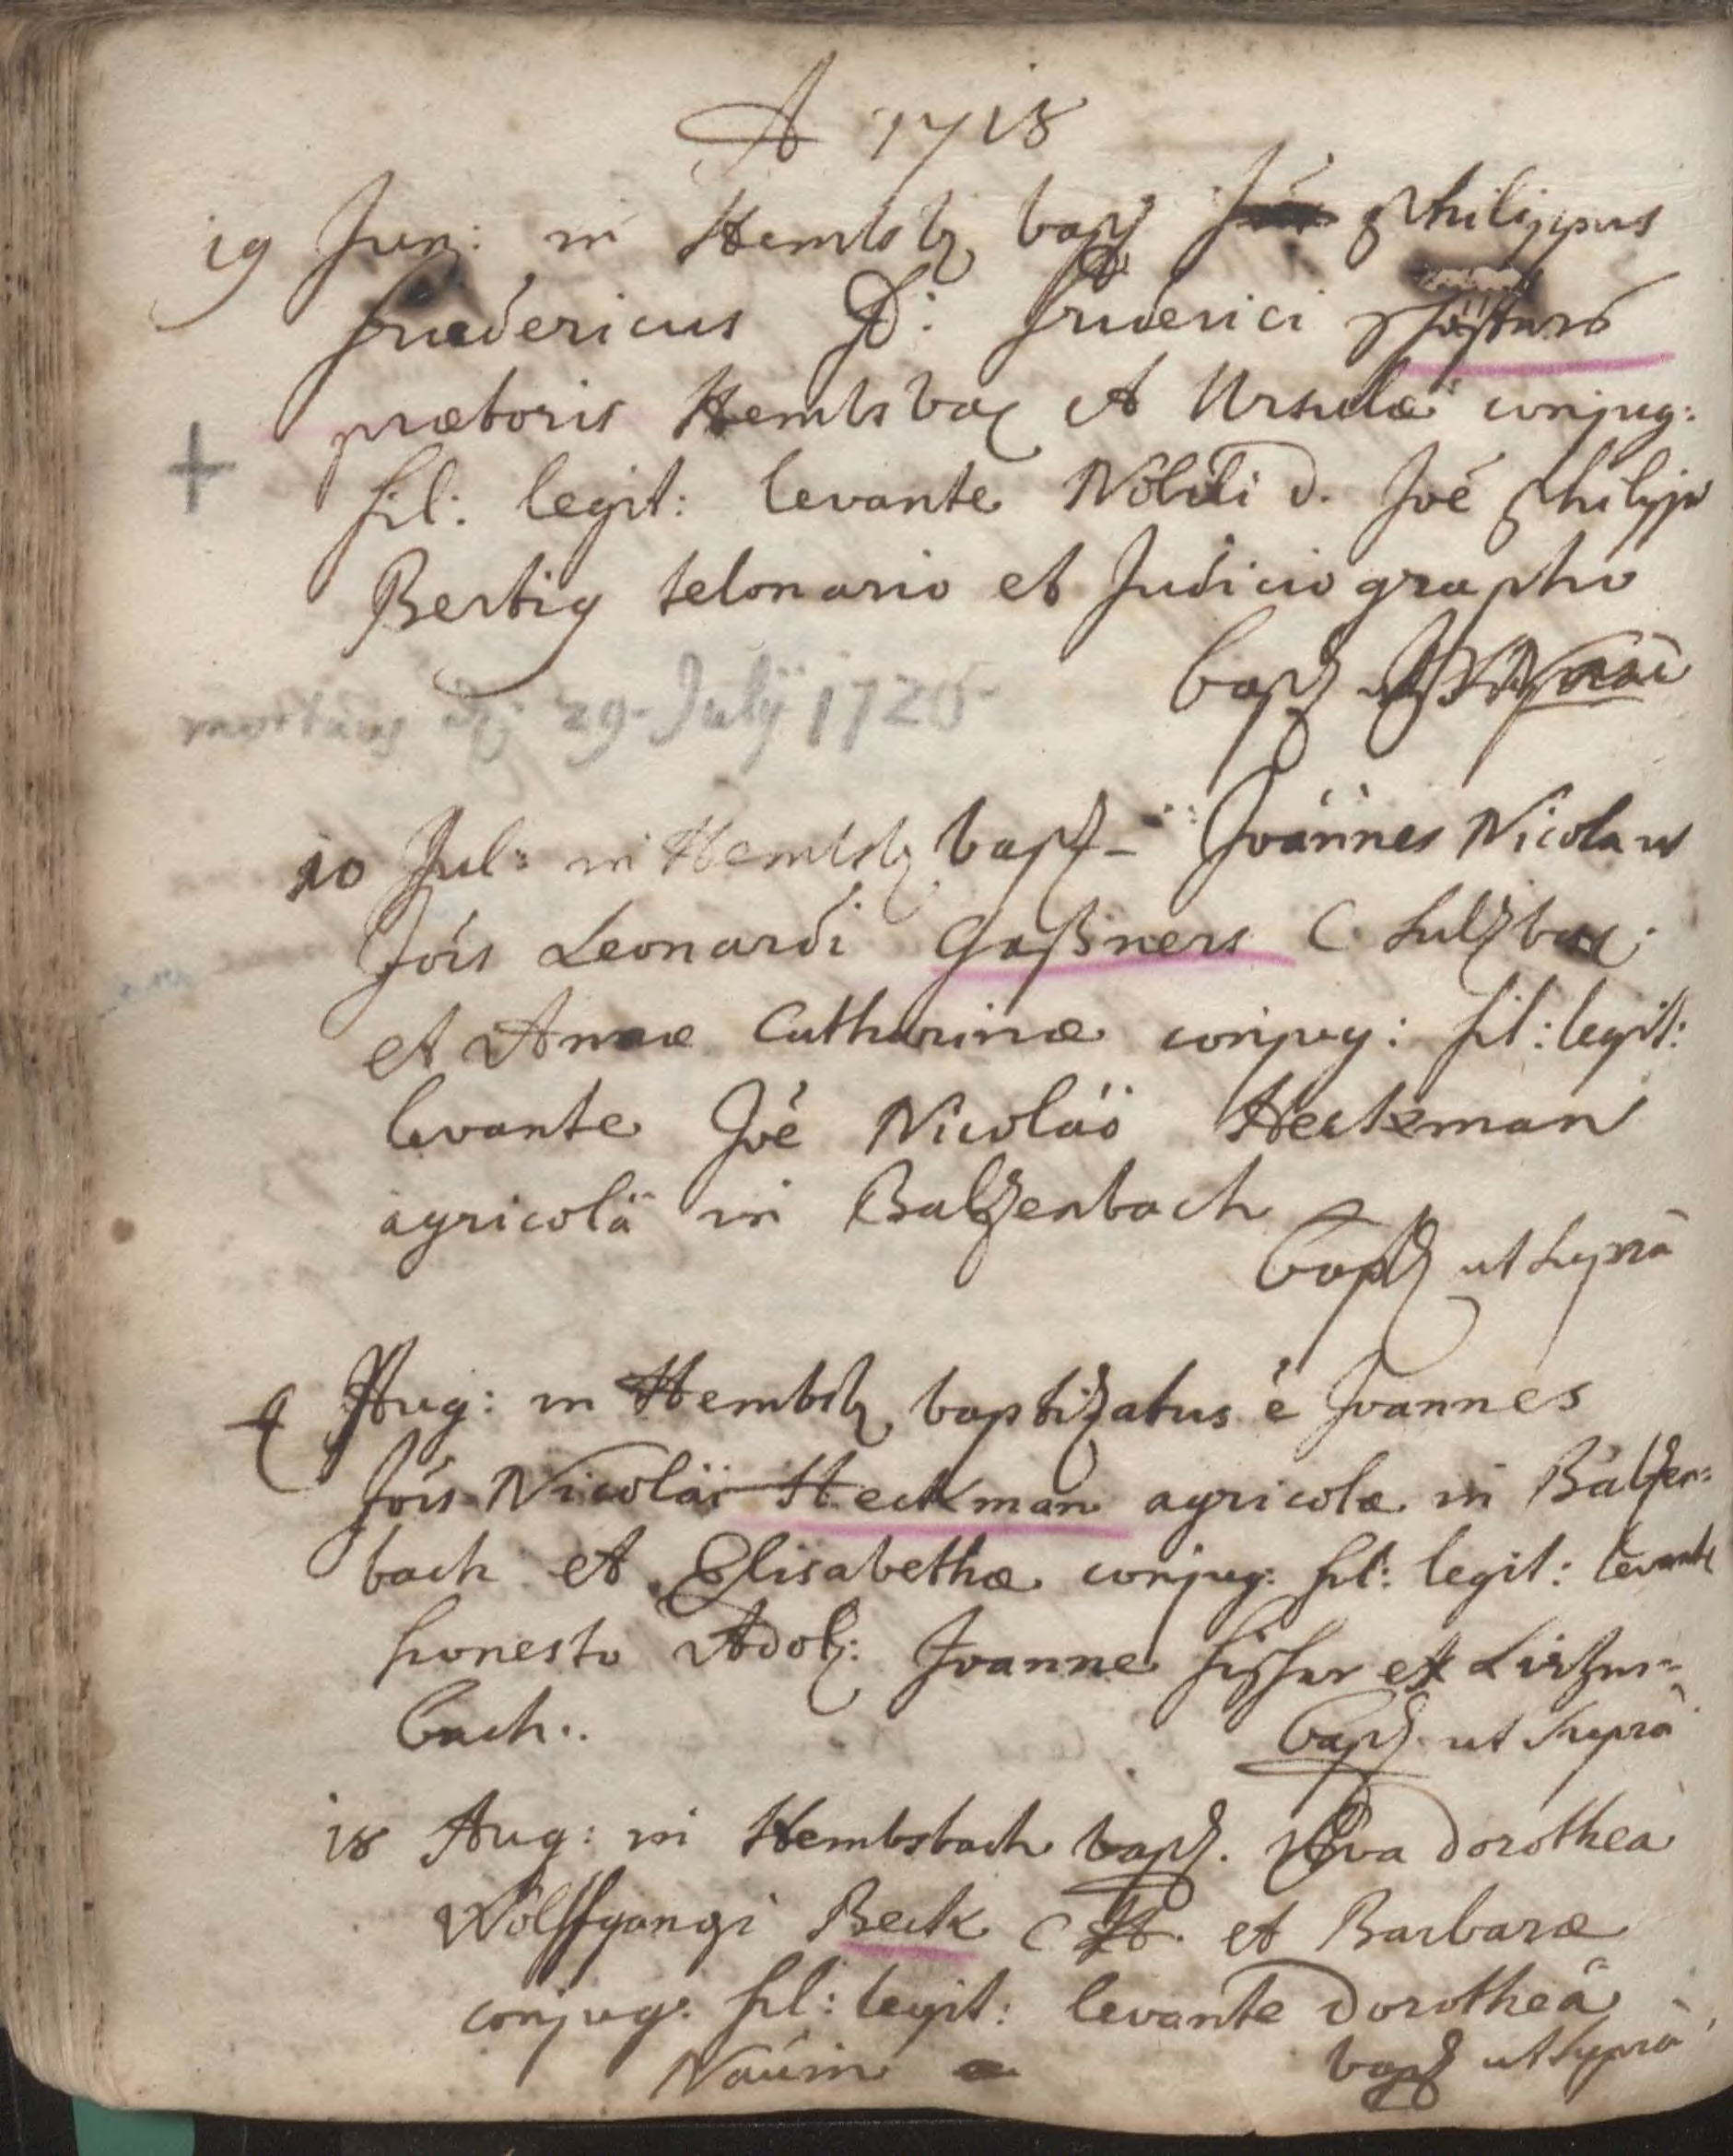 A 1718
19 Jun: in Hembsb bapt Philippus
fridericus D: friderici
prætoris Hembsbac et Ursulæ conjug:
fil: legit: levante Nobili d. Joe Philippo
Bertig telonario et Judiciographo
bapt ut supra
mortuus 29. July 1726
10 Jul: in Hembsb bapt – Joannes Nicolaus
Jois Leonardi Gaßners C. Sulzbac:
et Annæ Catharinæ conjug: fil: legit:
levante Joe Nicolao Heckman
agricola in Balzenbach
bapt ut supra
4 Aug: in Hembsb baptizatus e Joannes
Jois Nicolai Heckman agricolæ in Balzen=
bach et Elisabethæ conjug: fil: legit: levante
honesto Adol: Joanne ex
bach.. bapt. ut supra
18 Aug: in Hembsbach bapt. Eva Dorothea
Wolffgangi Beck C H. et Barbaræ
conjug: fil: legit: levante Dorothea
Nauin bapt ut supra